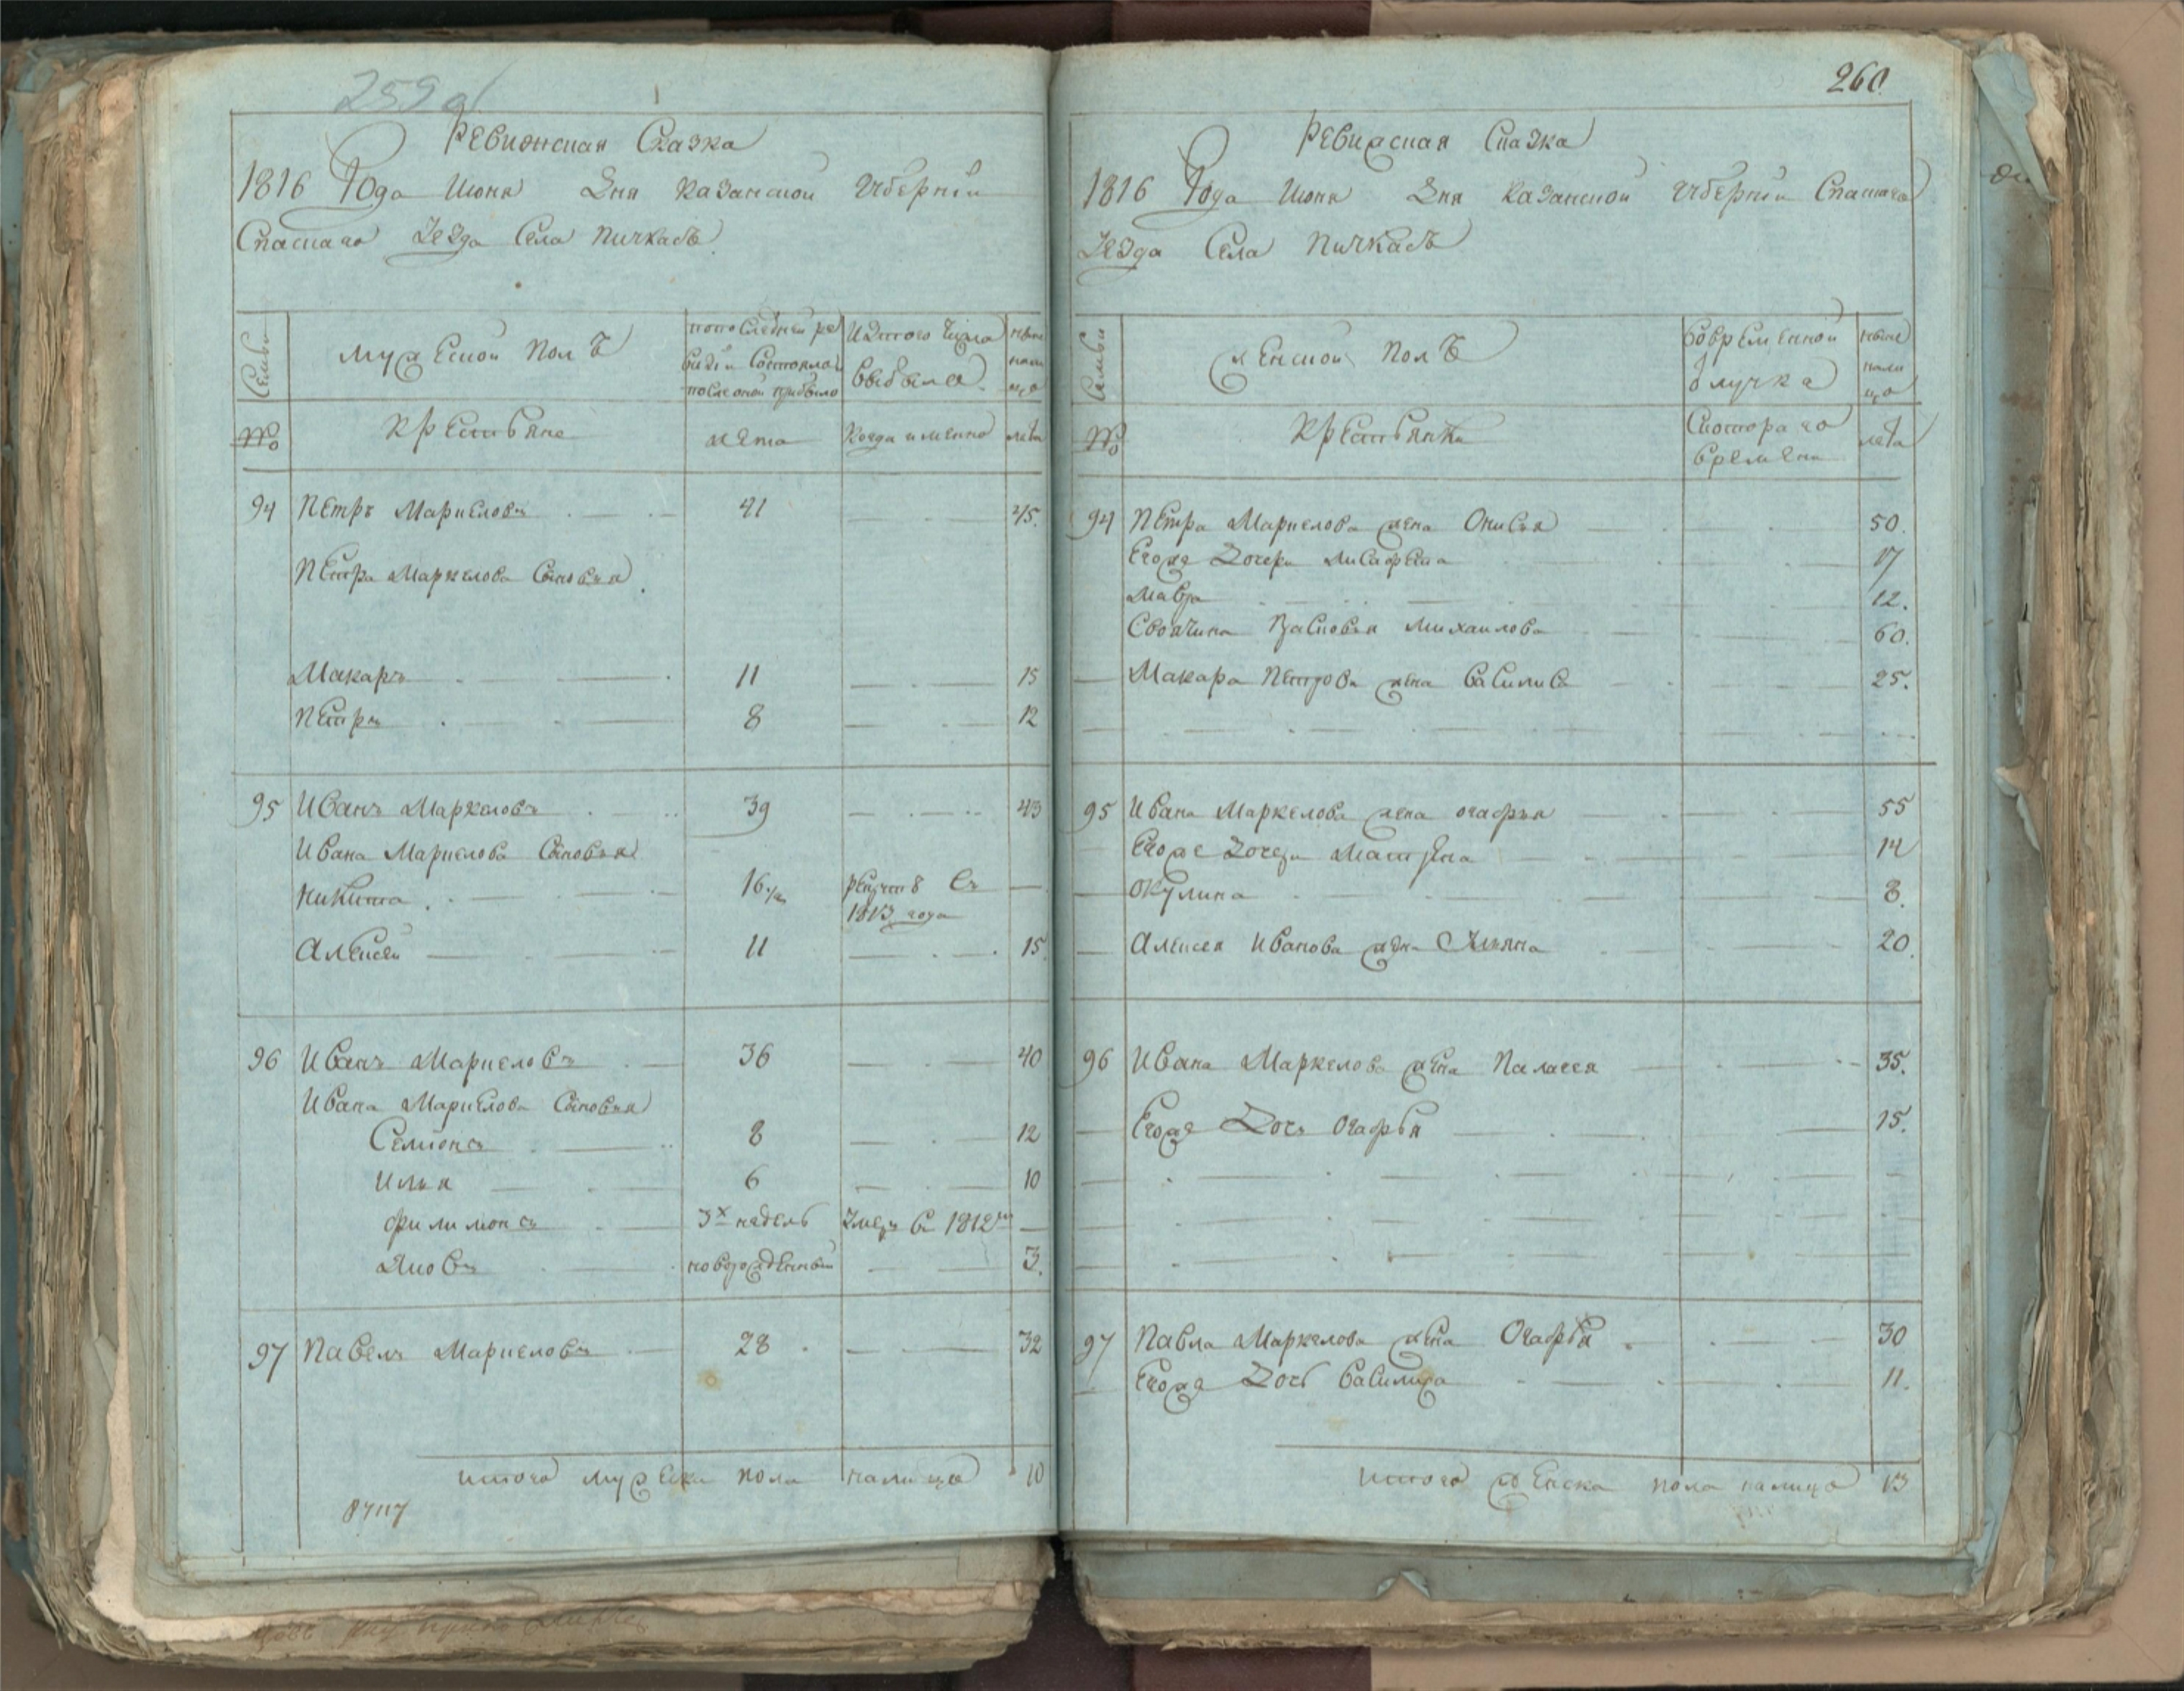 259 об
Ревижская Сказка
1816 Года Июня Дня Казанской Губернiи
Спаскаго Уезда Села Пичкасъ
Семьи
Мужеской Полъ
по последней ре
визiи Состояло и
после оной прибыло
Изтого Числа
выбыло
ныне
нали
цо
№
Крестьяне
лета
Когда имянно
лета
94 Петръ Маркеловъ 41 45.
Петра Маркелова Сыновья
Макаръ 11 15
Петръ 8 12
95 Иванъ Маркеловъ 39 43
Ивана Маркелова Сыновья
Никита 16 1/2 рекрут въ
1813 года
Алексей 11 15
96 Иванъ Маркеловъ 36 40
Ивана Маркелова Сыновья
Семионъ 8 12
Илья 6 10
Филимонъ 3х недель Умеръ въ 1812м
Яковъ новорожденный 3.
97 Павелъ Маркеловъ 28 32
итого мужеска пола налицо 10
260
Ревижская Сказка
1816 Года Июня Дня Казанской Губернiи Спаскаго
Уезда Села Пичкасъ
Семьи
Женской Полъ
Вовременной
Отлучке
ныне
нали
цо
№
Крестьянки
Скотораго
времени
лета
94 Петра Маркелова жена Онисья 50.
Егоже Дочери Лисафета 17
Мавра 12.
Своячина Прасковья Михаилова 60.
Макара Петрова жена Василиса 25.
95 Ивана Маркелова жена огафья 55
Егоже Дочери Матрена 14
окулина 8.
Алексея Иванова жена Ульяна 20.
96 Ивана Маркелова жена Палагея 35.
Егоже Дочь Огафья 15.
97 Павла Маркелова жена Огафья 30
Егоже Дочь Василиса 11.
итого женска пола налицо 13